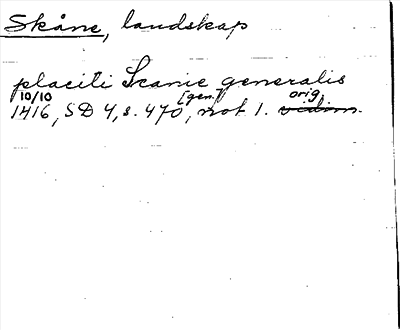 Skåne, landskap
placiti Scanie generalis
10/10 [gen.] orig.
1416, SD 4, s. 470, not 1. vidim.